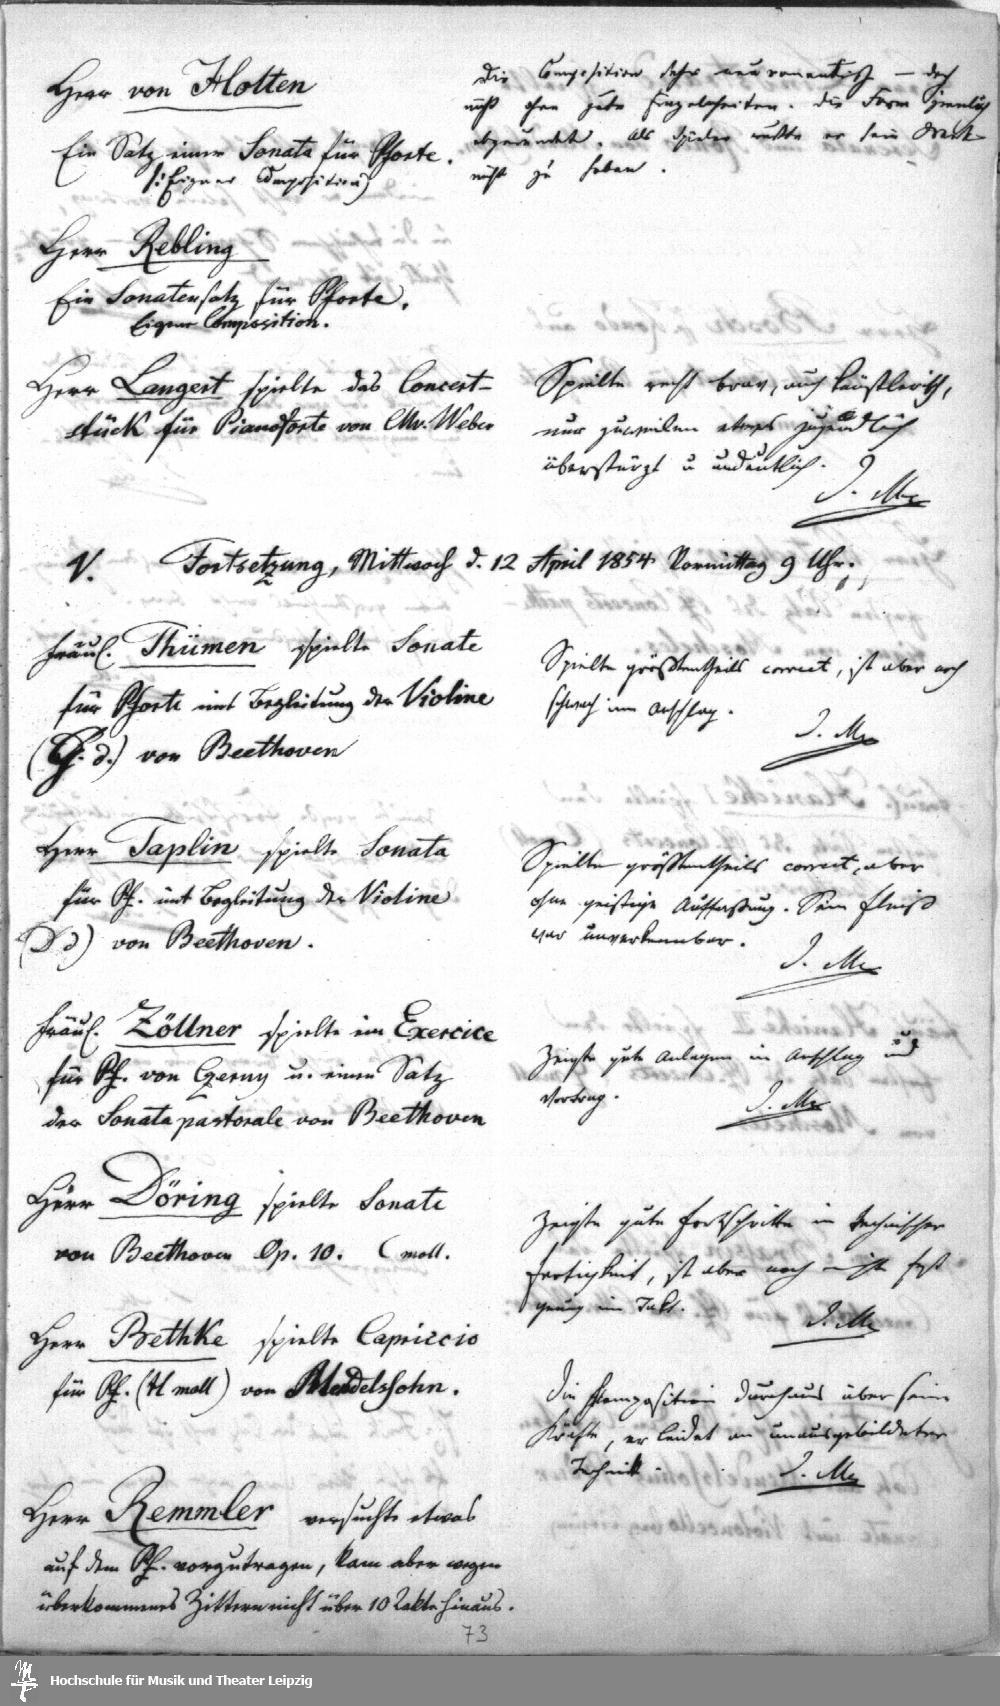 Herr von Holten
Ein Satz einer Sonata für Pforte.
/: Eigner Composition)
Die Composition sehr neuromantisch – doch
nicht ohne gute Einzelnheiten. Die Form ziemlich
abgerundet. Als Spieler wußte er sein
nicht zu haben.
Herr Rebling
Ein Sonatensatz für Pforte.
Eigner Composition.
Herr Langert spielte das Concert-
stück für Pianoforte von CMv. Weber
Spielte recht brav, auch künstlerisch,
nur zuweilen etwas jugendlich
überstürzt u undeutlich.
I. Mo
V. Fortsetzung, Mittwoch d. 12 April 1854 Vormittag 9 Uhr.
Fräul. Thümen spielte Sonate
für Pforte mit Begleitung der Violine
(G. d.) von Beethoven
Spielte größtentheils correct, ist aber noch
schwach im Anschlag.
I. Mo
Herr Taplin spielte Sonata
für Pf. mit Begleitung der Violine
(D d) von Beethoven.
Spielte größtentheils correct, aber
ohne geistige Auffassung. Sein Fleiß
war unverkennbar.
I. Mo
Fräul. Zöllner spielte ein Exercice
für Pf. von Czerny u. einen Satz
der Sonata pastorale von Beethoven
Zeigte gute Anlagen im Anschlag und
Vortrag.
I. Mo
Herr Döring spielte Sonate
von Beethoven Op. 10. C moll.
Zeigte gute Fortschritte in technischer
Fertigkeit, ist aber noch nicht fest
genug im Takt.
I. Mo
Herr Bethke spielte Capriccio
für Pf. (H moll) von Mendelssohn.
Die Komposition durchaus über seine
Kräfte, er leidet an unausgebildeter
Technik.
I. Mo
Herr Remmler versuchte etwas
auf dem Pf. vorzutragen, kam aber wegen
überkommenes Zittern nicht über 10 Takte hinaus.
73
Hochschule für Musik und Theater Leipzig